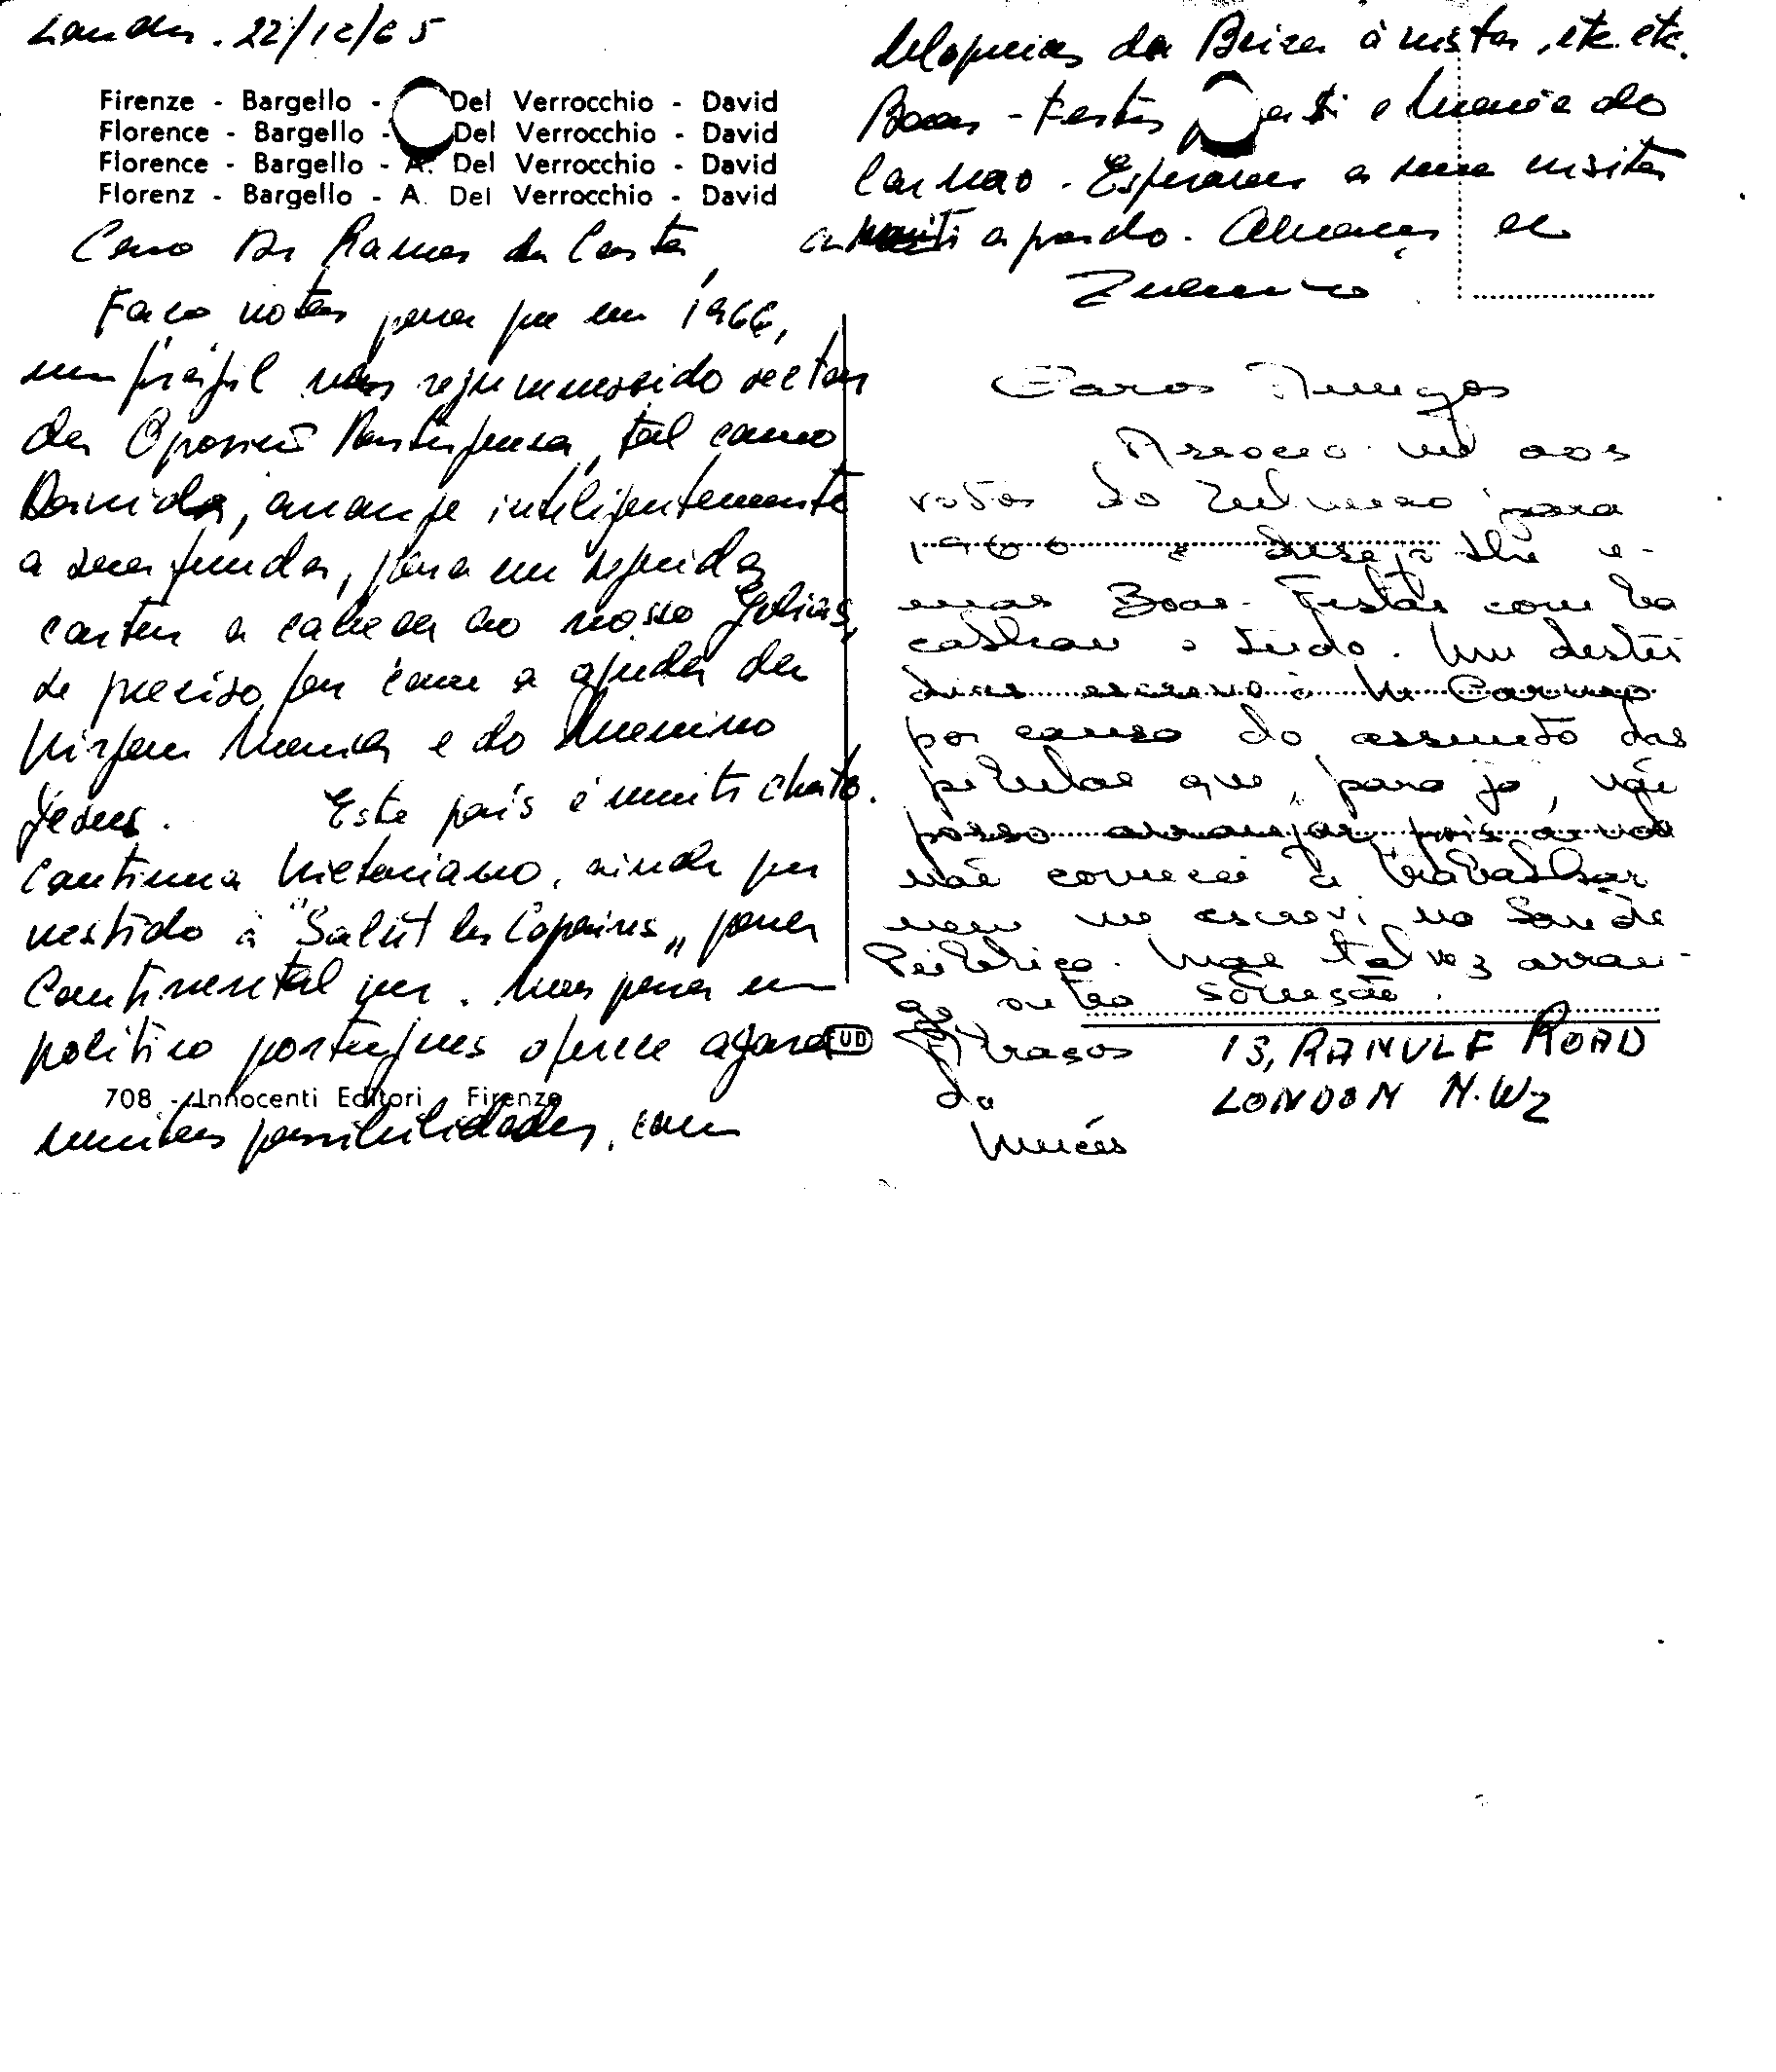 Londres. 22/12/65
Firenze - Bargello - Del Verrocchio - David
Florence - Bargello - Del Verrocchio - David
Florence - Bargello - A. Del Verrocchio - David
Florenz - Bargello - A. Del Verrocchio - David
Caro Dr Ramos da Costa,
Faço votos para que em 1966,
um frágil mas rejuvenescido sector
da Oposição Portuguesa, tal como
David, arranje inteligentemente
a sua funda, para em seguida
cortar a cabeça ao nosso Golias,
se preciso for com a ajuda da
Virgem Maria e do Menino
Jesus. Este país é muito chato.
Continua Victoriano, ainda que
vestido à "Salut les Copains" para
Continental ver. Mas para um
político português oferece agora
UD
708 - Innocenti Editori Firenze
muitas possibilidades, com
delegacias da Beira à vista, etc. etc.
Boas-Festas para si e Maria do
Carmo. Esperamos a sua visita
muito a
Caros Amigos
Associo-me aos
votos do para
1966 e desejo-lhe u-
mas Boas-Festas com ba
calhau e tudo. Um destes
dias escrevo à M. Carmo
por causa do assunto das
pílulas que, para já, não
posso arranjar, pois ainda
não comecei a trabalhar
nem me escrevi no Saúde
Pública. Mas talvez arran-
je outra solução.
Abraços
da
13, RANULF ROAD
LONDON N.W2